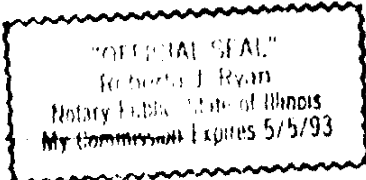 "OFFICIAL SEAL"
Roberta J. Ryan
Notary Public, State of Illinois
My Commission Expires 5/5/93